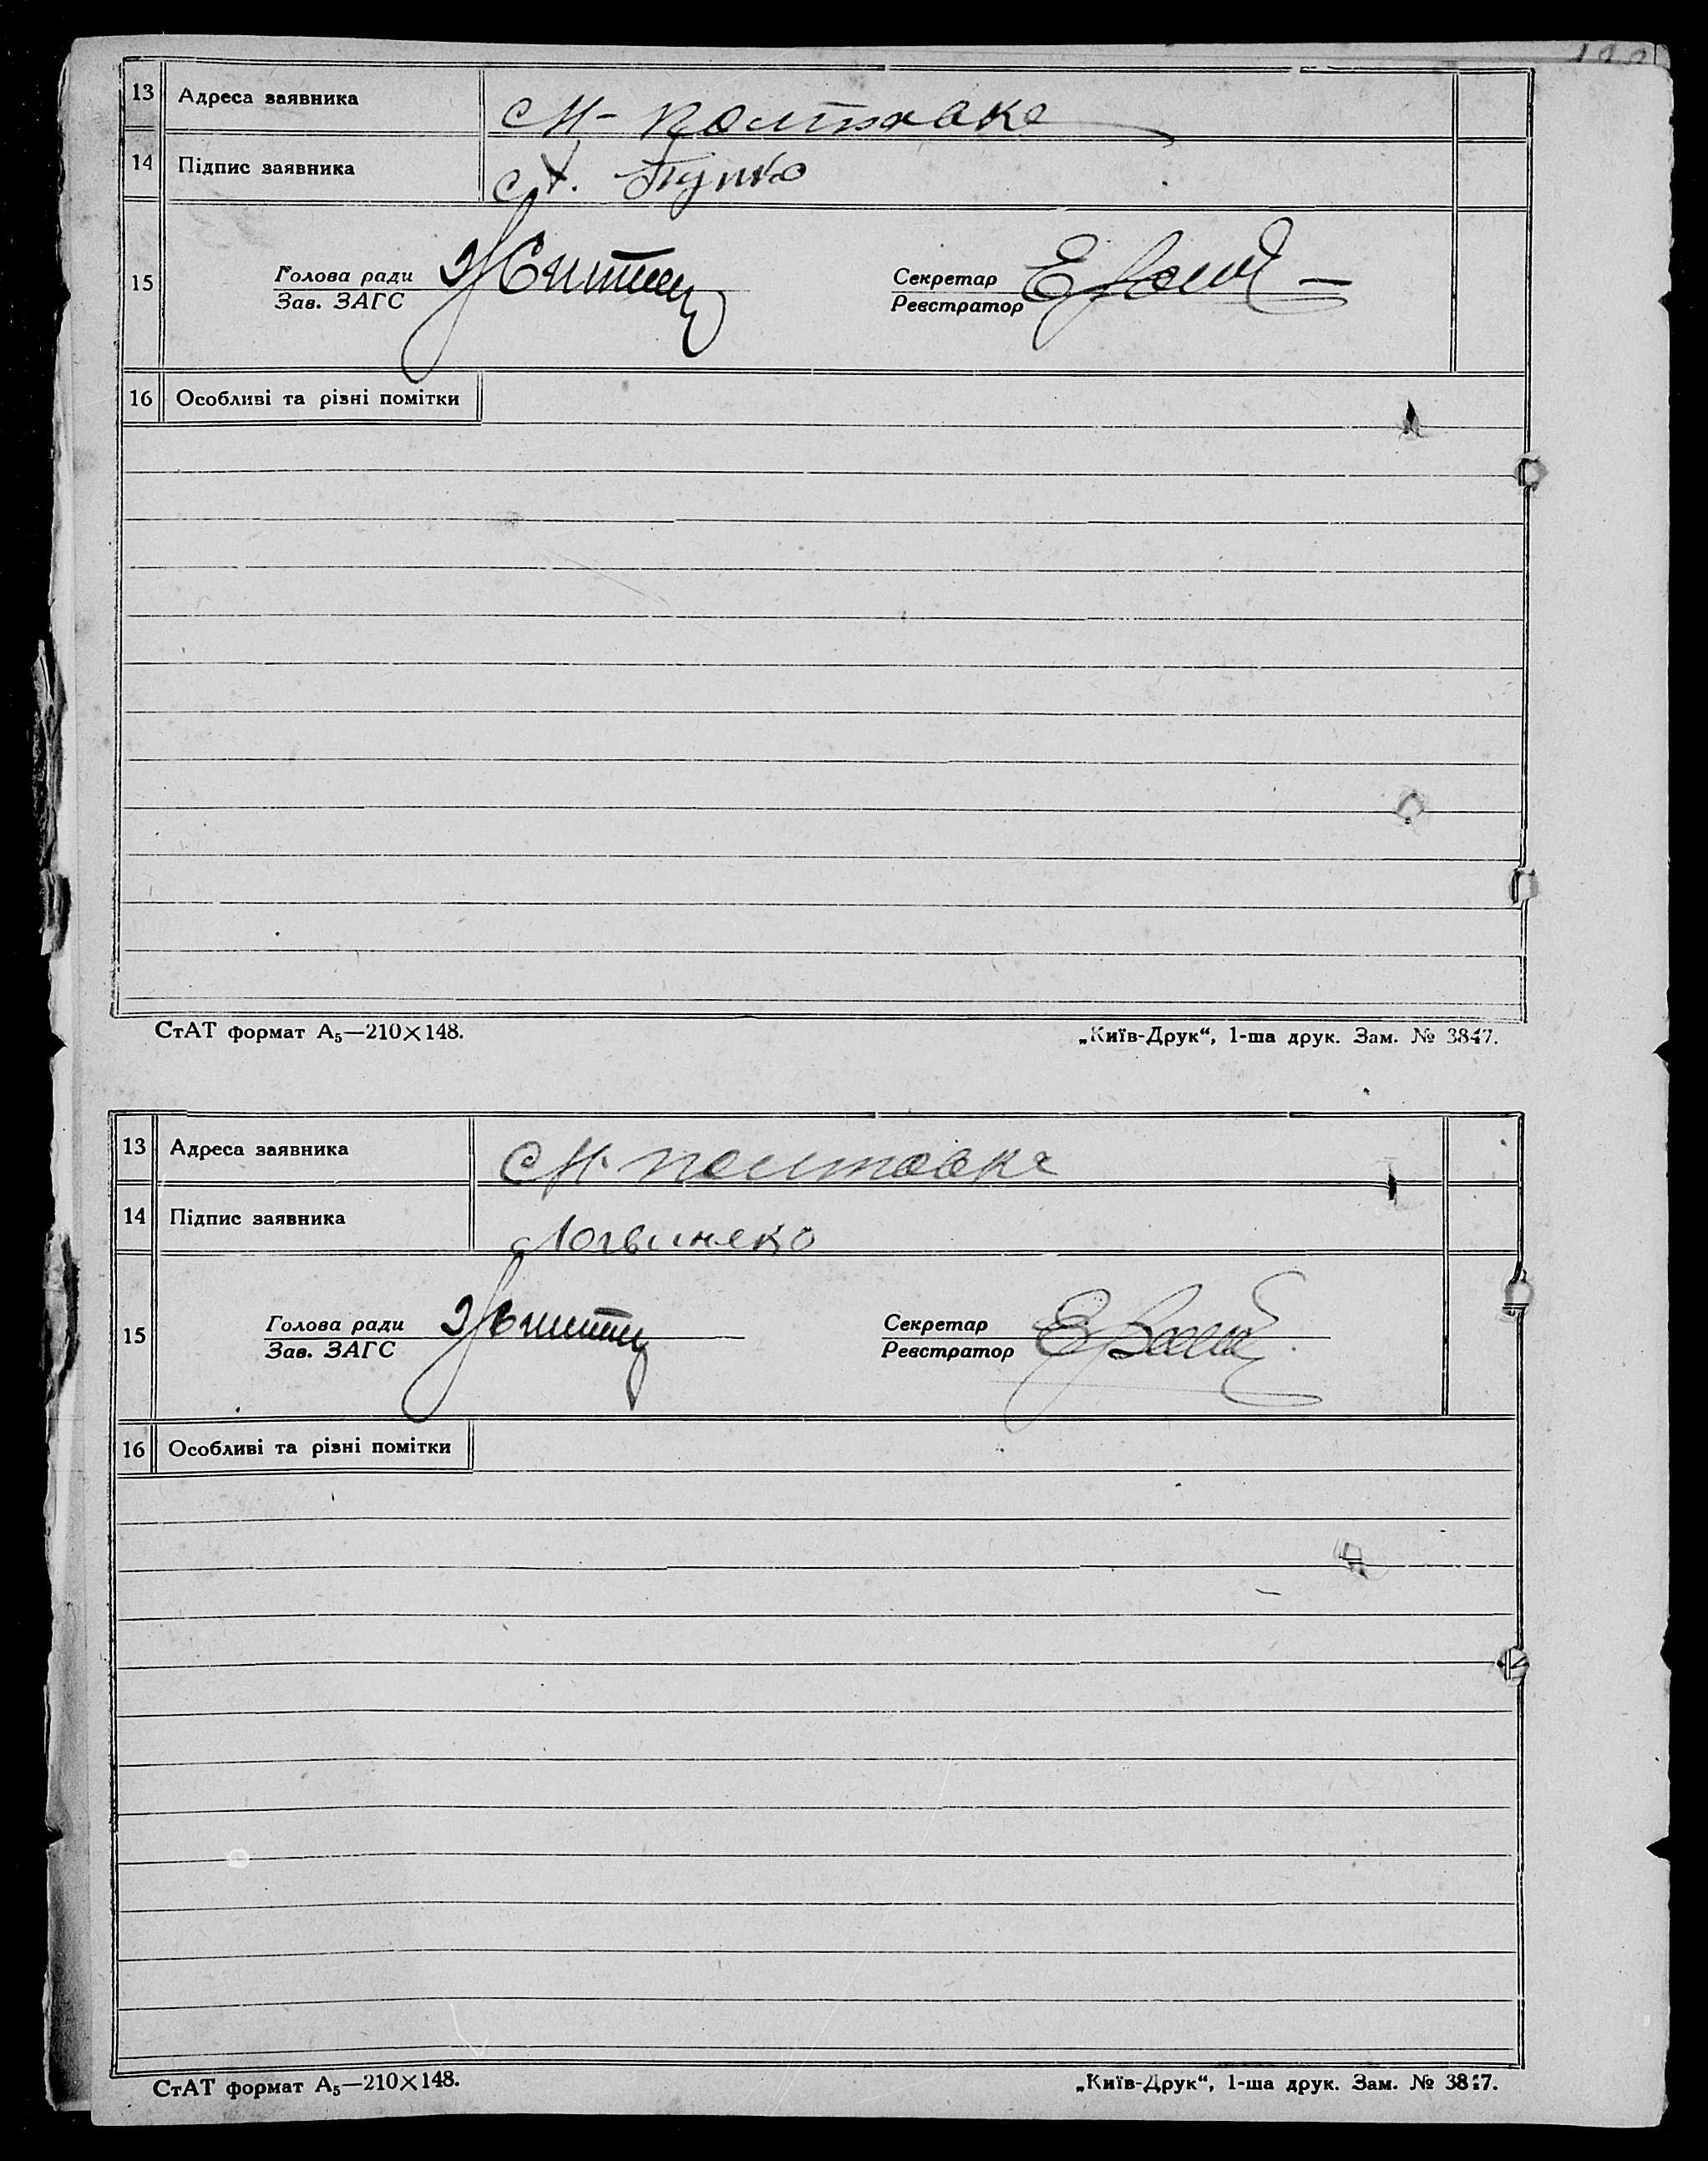 13 Адреса заявника М-Полтавка
14 Підпис заявника А. Пупко
15 Голова ради Секретар
Зав. ЗАГС Реєстратор
16 Особливі та різні помітки
СтАТ формат А₅—210×148. „Київ-Друк“, 1-ша друк. Зам. № 3847.
13 Адреса заявника М-Полтавка
14 Підпис заявника Логвиненко
15 Голова ради Секретар
Зав. ЗАГС Реєстратор
16 Особливі та різні помітки
СтАТ формат А₅—210×148. „Київ-Друк“, 1-ша друк. Зам. № 3847.